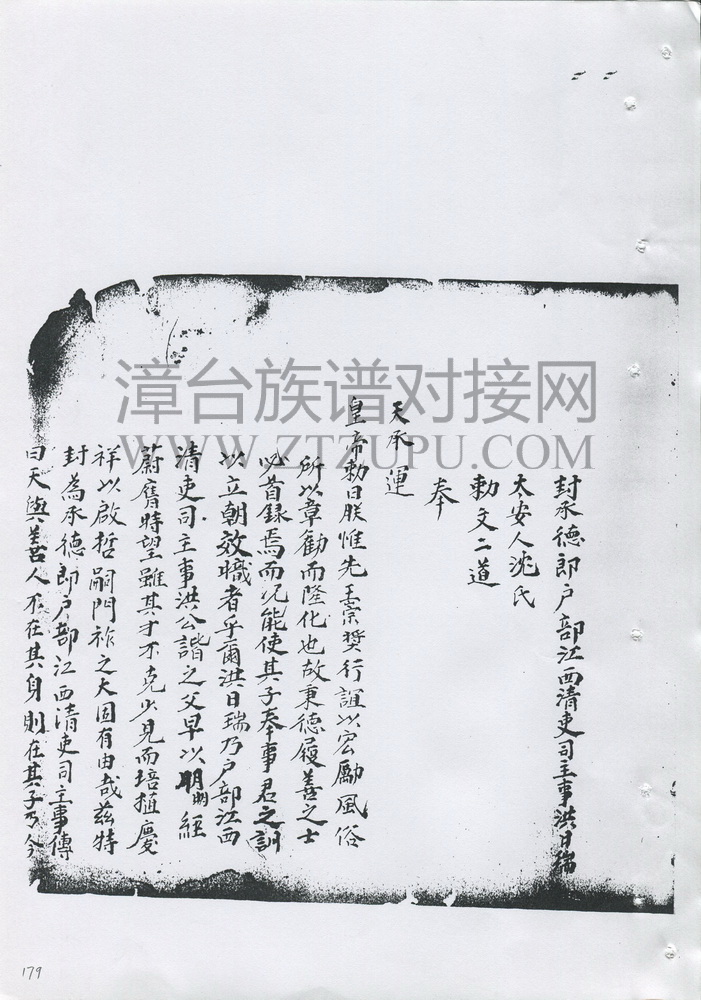 封承德郎户部江西清吏司主事洪日瑞
太安人沈氏
勅文二道
奉
天承運
皇帝勅曰朕惟先王崇奬行誼以宏勵風俗
所以章勸而隆化也故秉德履善之士
必首録焉而况能使其子奉事君之訓
以立朝效職者乎爾洪日瑞乃户部江西
清吏司主事洪公諧之父早以明經
蔚膺時望雖其才不克少見而培植慶
祥以啟哲嗣門祚之大固有由哉兹特
封為承德郎户部江西清吏司主事傳
曰天與善人不在其身則在其子乃今
漳台族谱对接网
WWW.ZTZUPU.COM
179